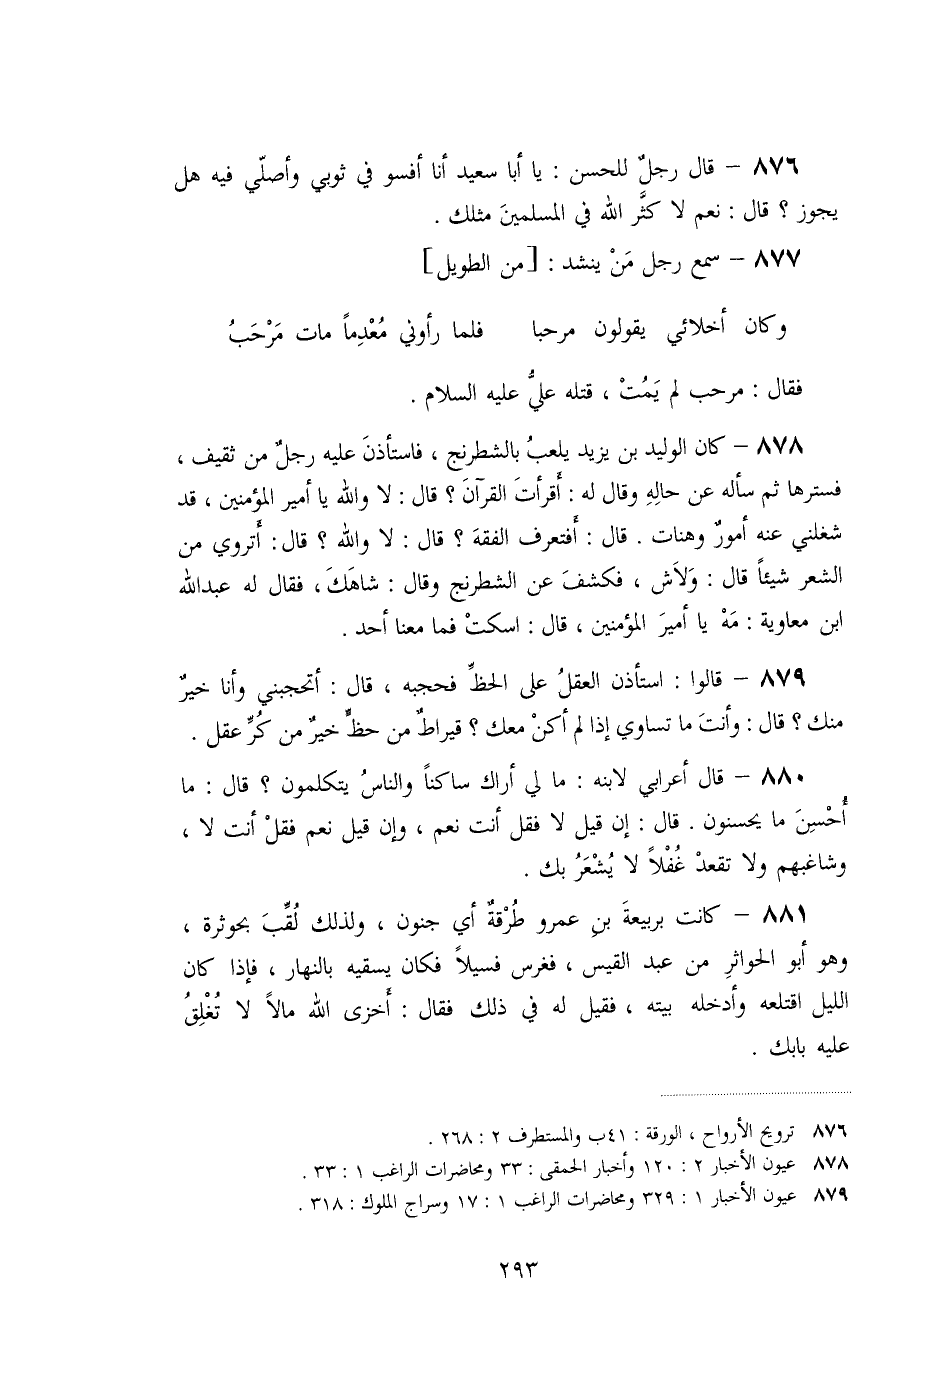 ٨٧٦ – قال رجلٌ للحسن : يا أبا سعيد أنا أفسو في ثوبي وأصلّي فيه هل
يجوز ؟ قال : نعم لا كثَّر الله في المسلمينَ مثلك .
٨٧٧ – سمع رجل مَنْ ينشد : [من الطويل]
وكان أخلائي يقولون مرحبا فلما رأوني مُعْدِماً مات مَرْحَبُ
فقال : مرحب لم يَمُتْ ، قتله عليٌّ عليه السلام .
٨٧٨ – كان الوليد بن يزيد يلعبُ بالشطرنج ، فاستأذنَ عليه رجلٌ من ثقيف ،
فسترها ثم سأله عن حالِهِ وقال له : أَقرأتَ القرآنَ ؟ قال : لا والله يا أمير المؤمنين ، قد
شغلني عنه أمورٌ وهنات . قال : أَفتعرف الفقهَ ؟ قال : لا والله ؟ قال : أَتروي من
الشعر شيئاً قال : وَلاَش ، فكشفَ عن الشطرنج وقال : شاهَكَ ، فقال له عبدالله
ابن معاوية : مَهْ يا أميرَ المؤمنين ، قال : اسكتْ فما معنا أحد .
٨٧٩ – قالوا : استأذن العقلُ على الحظِّ فحجبه ، قال : أتحجبني وأنا خيرٌ
منك ؟ قال : وأنتَ ما تساوي إذا لم أكنْ معك ؟ قيراطٌ من حظٍّ خيرٌ من كُرِّ عقل .
٨٨٠ – قال أعرابي لابنه : ما لي أراك ساكتاً والناسُ يتكلمون ؟ قال : ما
أُحْسِنَ ما يحسنون . قال : إن قيل لا فقل أنت نعم ، وإن قيل نعم فقلْ أنت لا ،
وشاغبهم ولا تقعدْ غُفْلاً لا يُشْعَرُ بك .
٨٨١ – كانت بربيعةَ بنِ عمرو طُرْقةٌ أي جنون ، ولذلك لُقِّبَ بحوثرة ،
وهو أبو الحواثرِ من عبد القيس ، فغرس فسيلاً فكان يسقيه بالنهار ، فإذا كان
الليل اقتلعه وأدخله بيته ، فقيل له في ذلك فقال : أَخزى الله مالاً لا تُغْلِقُ
عليه بابك .
٨٧٦ ترويح الأرواح ، الورقة : ٤١ب والمستطرف ٢ : ٢٦٨ .
٨٧٨ عيون الأخبار ٢ : ١٢٠ وأخبار الحمقى : ٣٣ ومحاضرات الراغب ١ : ٣٣ .
٨٧٩ عيون الأخبار ١ : ٣٢٩ ومحاضرات الراغب ١ : ١٧ وسراج الملوك : ٣١٨ .
٢٩٣